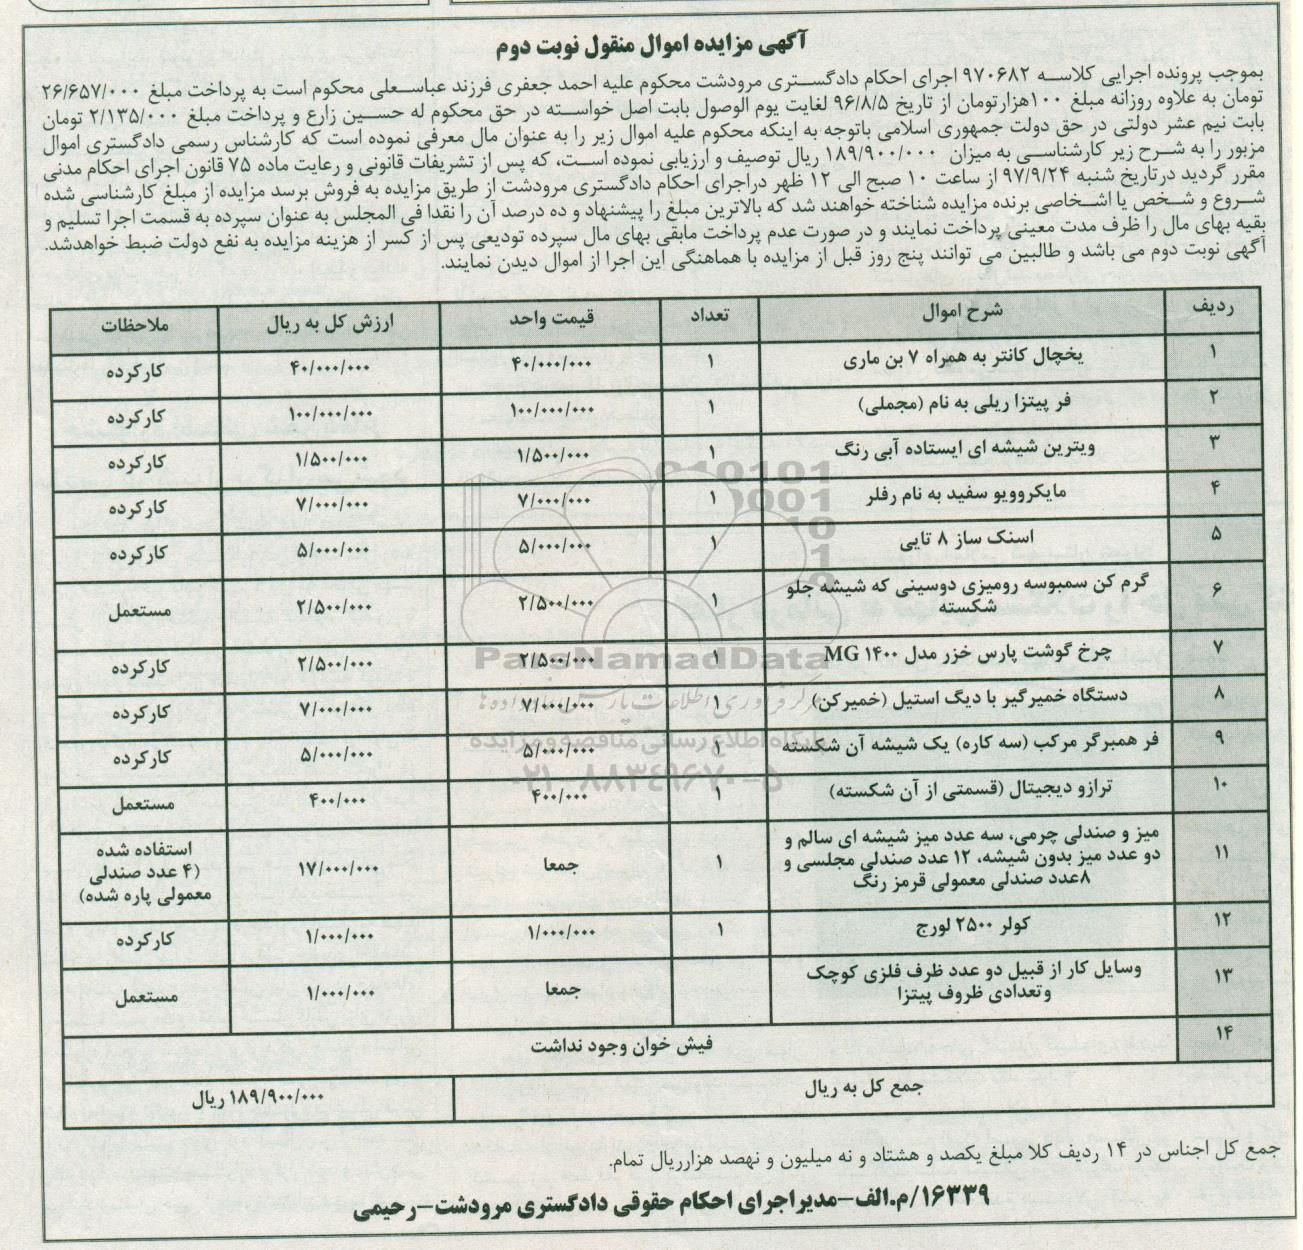 آگهی مزایده اموال منقول نوبت دوم
بموجب پرونده اجرایی کلاسه ۹۷۰۶۸۲ اجرای احکام دادگستری مرودشت محکوم علیه احمد جعفری فرزند عباسعلی محکوم است به پرداخت مبلغ ۲۶/۶۵۷/۰۰۰
تومان به علاوه روزانه مبلغ ۱۰۰هزارتومان از تاریخ ۹۶/۸/۵ لغایت یوم الوصول بابت اصل خواسته در حق محکوم له حسین زارع و پرداخت مبلغ ۲/۱۳۵/۰۰۰ تومان
بابت نیم عشر دولتی در حق دولت جمهوری اسلامی باتوجه به اینکه محکوم علیه اموال زیر را به عنوان مال معرفی نموده است که کارشناس رسمی دادگستری اموال
مزبور را به شرح زیر کارشناسی به میزان ۱۸۹/۹۰۰/۰۰۰ ریال توصیف و ارزیابی نموده است، که پس از تشریفات قانونی و رعایت ماده ۷۵ قانون اجرای احکام مدنی
مقرر گردید درتاریخ شنبه ۹۷/۹/۲۴ از ساعت ۱۰ صبح الی ۱۲ ظهر دراجرای احکام دادگستری مرودشت از طریق مزایده به فروش برسد مزایده از مبلغ کارشناسی شده
شروع و شخص یا اشخاصی برنده مزایده شناخته خواهند شد که بالاترین مبلغ را پیشنهاد و ده درصد آن را نقدا فی المجلس به عنوان سپرده به قسمت اجرا تسلیم و
بقیه بهای مال را ظرف مدت معینی پرداخت نمایند و در صورت عدم پرداخت مابقی بهای مال سپرده تودیعی پس از کسر از هزینه مزایده به نفع دولت ضبط خواهدشد.
آگهی نوبت دوم می باشد و طالبین می توانند پنج روز قبل از مزایده با هماهنگی این اجرا از اموال دیدن نمایند.
ردیف شرح اموال تعداد قیمت واحد ارزش کل به ریال ملاحظات
۱ یخچال کانتر به همراه ۷ بن ماری ۱ ۴۰/۰۰۰/۰۰۰ ۴۰/۰۰۰/۰۰۰ کارکرده
۲ فر پیتزا ریلی به نام (مجملی) ۱ ۱۰۰/۰۰۰/۰۰۰ ۱۰۰/۰۰۰/۰۰۰ کارکرده
۳ ویترین شیشه ای ایستاده آبی رنگ ۱ ۱/۵۰۰/۰۰۰ ۱/۵۰۰/۰۰۰ کارکرده
۴ مایکروویو سفید به نام رفلر ۱ ۷/۰۰۰/۰۰۰ ۷/۰۰۰/۰۰۰ کارکرده
۵ اسنک ساز ۸ تایی ۱ ۵/۰۰۰/۰۰۰ ۵/۰۰۰/۰۰۰ کارکرده
۶ گرم کن سمبوسه رومیزی دوسینی که شیشه جلو
شکسته ۱ ۲/۵۰۰/۰۰۰ ۲/۵۰۰/۰۰۰ مستعمل
۷ چرخ گوشت پارس خزر مدل MG ۱۴۰۰ ۱ ۲/۵۰۰/۰۰۰ ۲/۵۰۰/۰۰۰ کارکرده
۸ دستگاه خمیرگیر با دیگ استیل (خمیرکن) ۱ ۷/۰۰۰/۰۰۰ ۷/۰۰۰/۰۰۰ کارکرده
۹ فر همبرگر مرکب (سه کاره) یک شیشه آن شکسته ۱ ۵/۰۰۰/۰۰۰ ۵/۰۰۰/۰۰۰ کارکرده
۱۰ ترازو دیجیتال (قسمتی از آن شکسته) ۱ ۴۰۰/۰۰۰ ۴۰۰/۰۰۰ مستعمل
۱۱ میز و صندلی چرمی، سه عدد میز شیشه ای سالم و
دو عدد میز بدون شیشه، ۱۲ عدد صندلی مجلسی و
۸عدد صندلی معمولی قرمز رنگ ۱ جمعا ۱۷/۰۰۰/۰۰۰ استفاده شده
(۴ عدد صندلی
معمولی پاره شده)
۱۲ کولر ۲۵۰۰ لورج ۱ ۱/۰۰۰/۰۰۰ ۱/۰۰۰/۰۰۰ کارکرده
۱۳ وسایل کار از قبیل دو عدد ظرف فلزی کوچک
وتعدادی ظروف پیتزا جمعا ۱/۰۰۰/۰۰۰ مستعمل
۱۴ فیش خوان وجود نداشت
جمع کل به ریال ۱۸۹/۹۰۰/۰۰۰ ریال
جمع کل اجناس در ۱۴ ردیف کلا مبلغ یکصد و هشتاد و نه میلیون و نهصد هزارریال تمام.
۱۶۳۳۹/م.الف-مدیراجرای احکام حقوقی دادگستری مرودشت-رحیمی
ParsNamadData
پایگاه اطلاع رسانی مناقصه و مزایده
۰۲۱-۸۸۳۴۹۶۷۰-۵